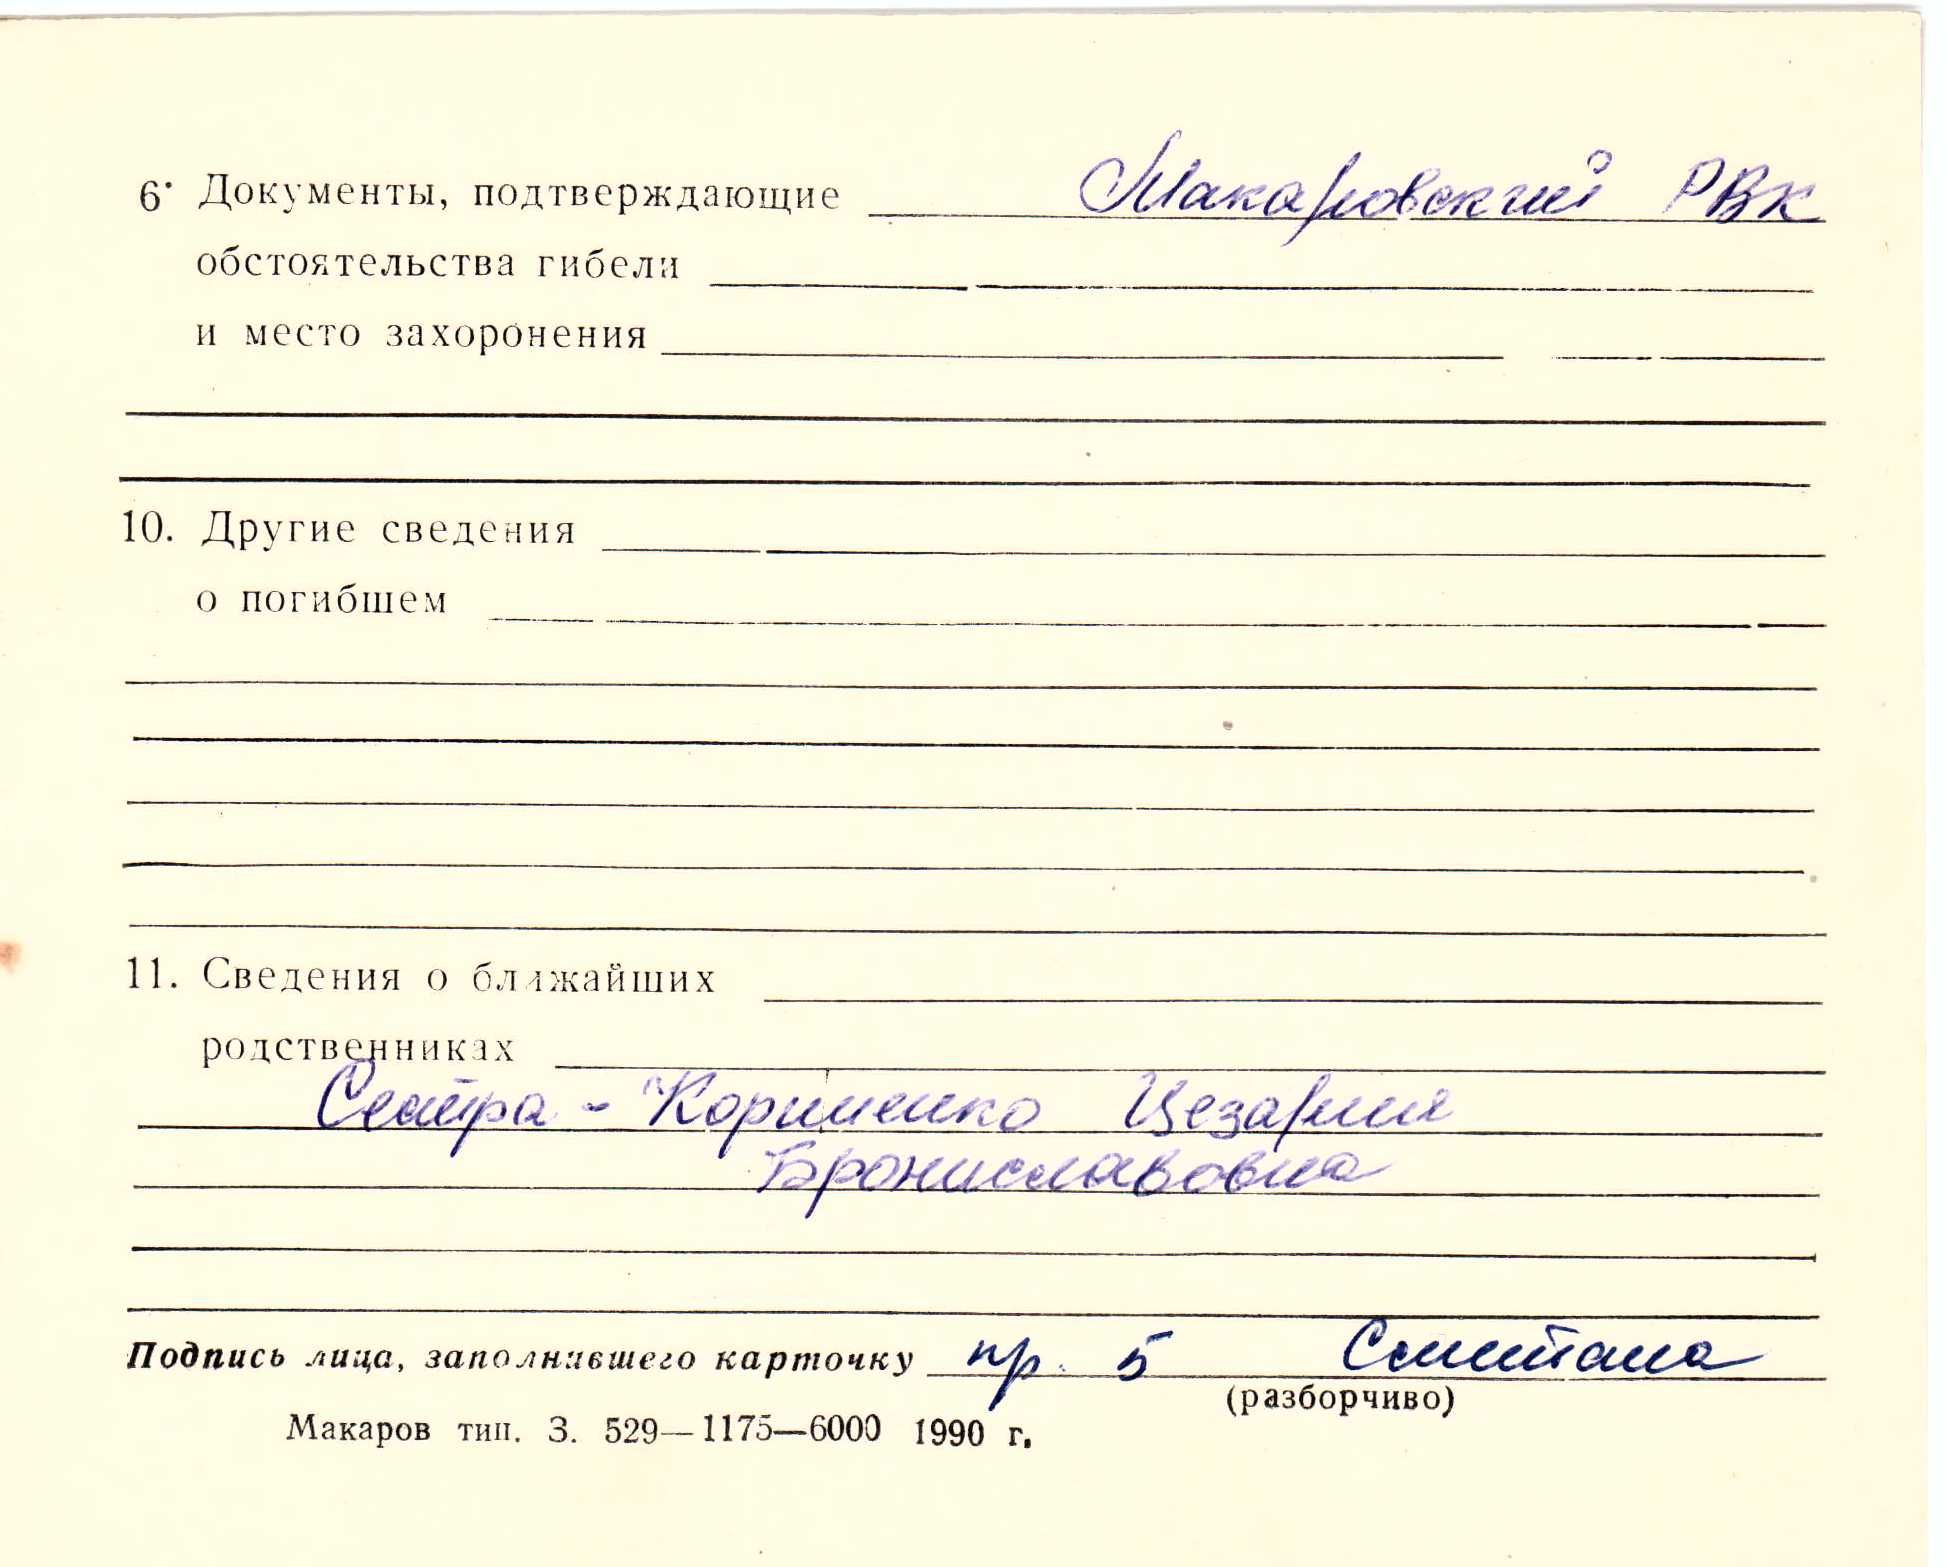 6. Документы, подтверждающие Макаровский РВК
обстоятельства гибели
и место захоронения
10. Другие сведения
о погибшем
11. Сведения о ближайших
родственниках
Сестра - Корниенко Цезария
Брониславовна
Подпись лица, заполнившего карточку пр. 5 Сметана
(разборчиво)
Макаров тип. З. 529—1175—6000 1990 г.